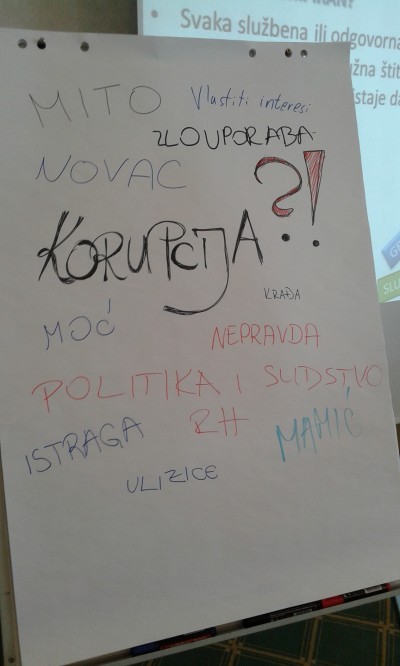 Svaka službena ili odgovorna
žna štit
staje da
MITO
Vlastiti interesi
ZLOUPORABA
NOVAC
KORUPCIJA?!
KRAĐA
MOĆ
NEPRAVDA
POLITIKA I SUDSTVO
RH
ISTRAGA
MAMIĆ
ULIZICE